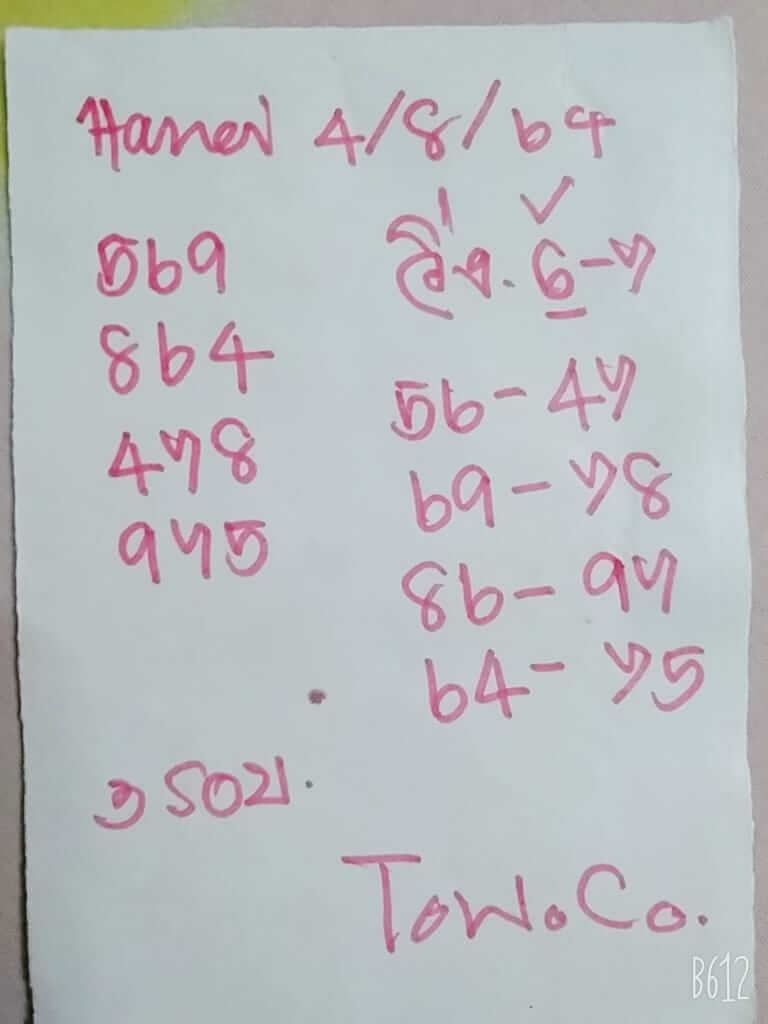 Hanoi 4/8/64
569
864
478
975
วิ่ง. 6-7
56-47
69-78
86-97
64-75
3 รอบ.
Tow.Co.
B612